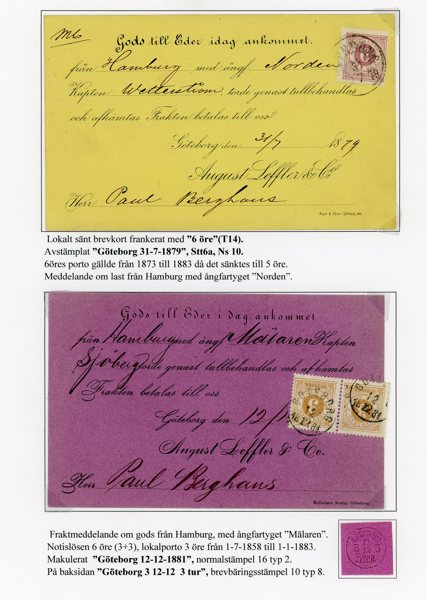 M6
Gods till Eder idag ankommet.
från Hamburg med ångf. Norden
Kapten Wetterström torde genast tullbehandlas
och afhämtas. Frakten betalas till oss
Göteborg den 31/7 1879
August Leffler & Co
Herr Paul Berghaus
Lokalt sänt brevkort frankerat med ”6 öre”(T14).
Avstämplat ”Göteborg 31-7-1879”, Stt6a, Ns 10.
6öres porto gällde från 1873 till 1883 då det sänktes till 5 öre.
Meddelande om last från Hamburg med ångfartyget ”Norden”.
Gods till Eder i dag ankommet
från Hamburg med ångf. Mälaren Kapten
Sjöberg torde genast tullbehandlas och afhämtas
Frakten betalas till oss.
Göteborg den 12/12
August Leffler & Co.
Herr Paul Berghaus
Fraktmeddelande om gods från Hamburg, med ångfartyget ”Mälaren”.
Notislösen 6 öre (3+3), lokalporto 3 öre från 1-7-1858 till 1-1-1883.
Makulerat ”Göteborg 12-12-1881”, normalstämpel 16 typ 2.
På baksidan ”Göteborg 3 12-12 3 tur”, brevbäringsstämpel 10 typ 8.